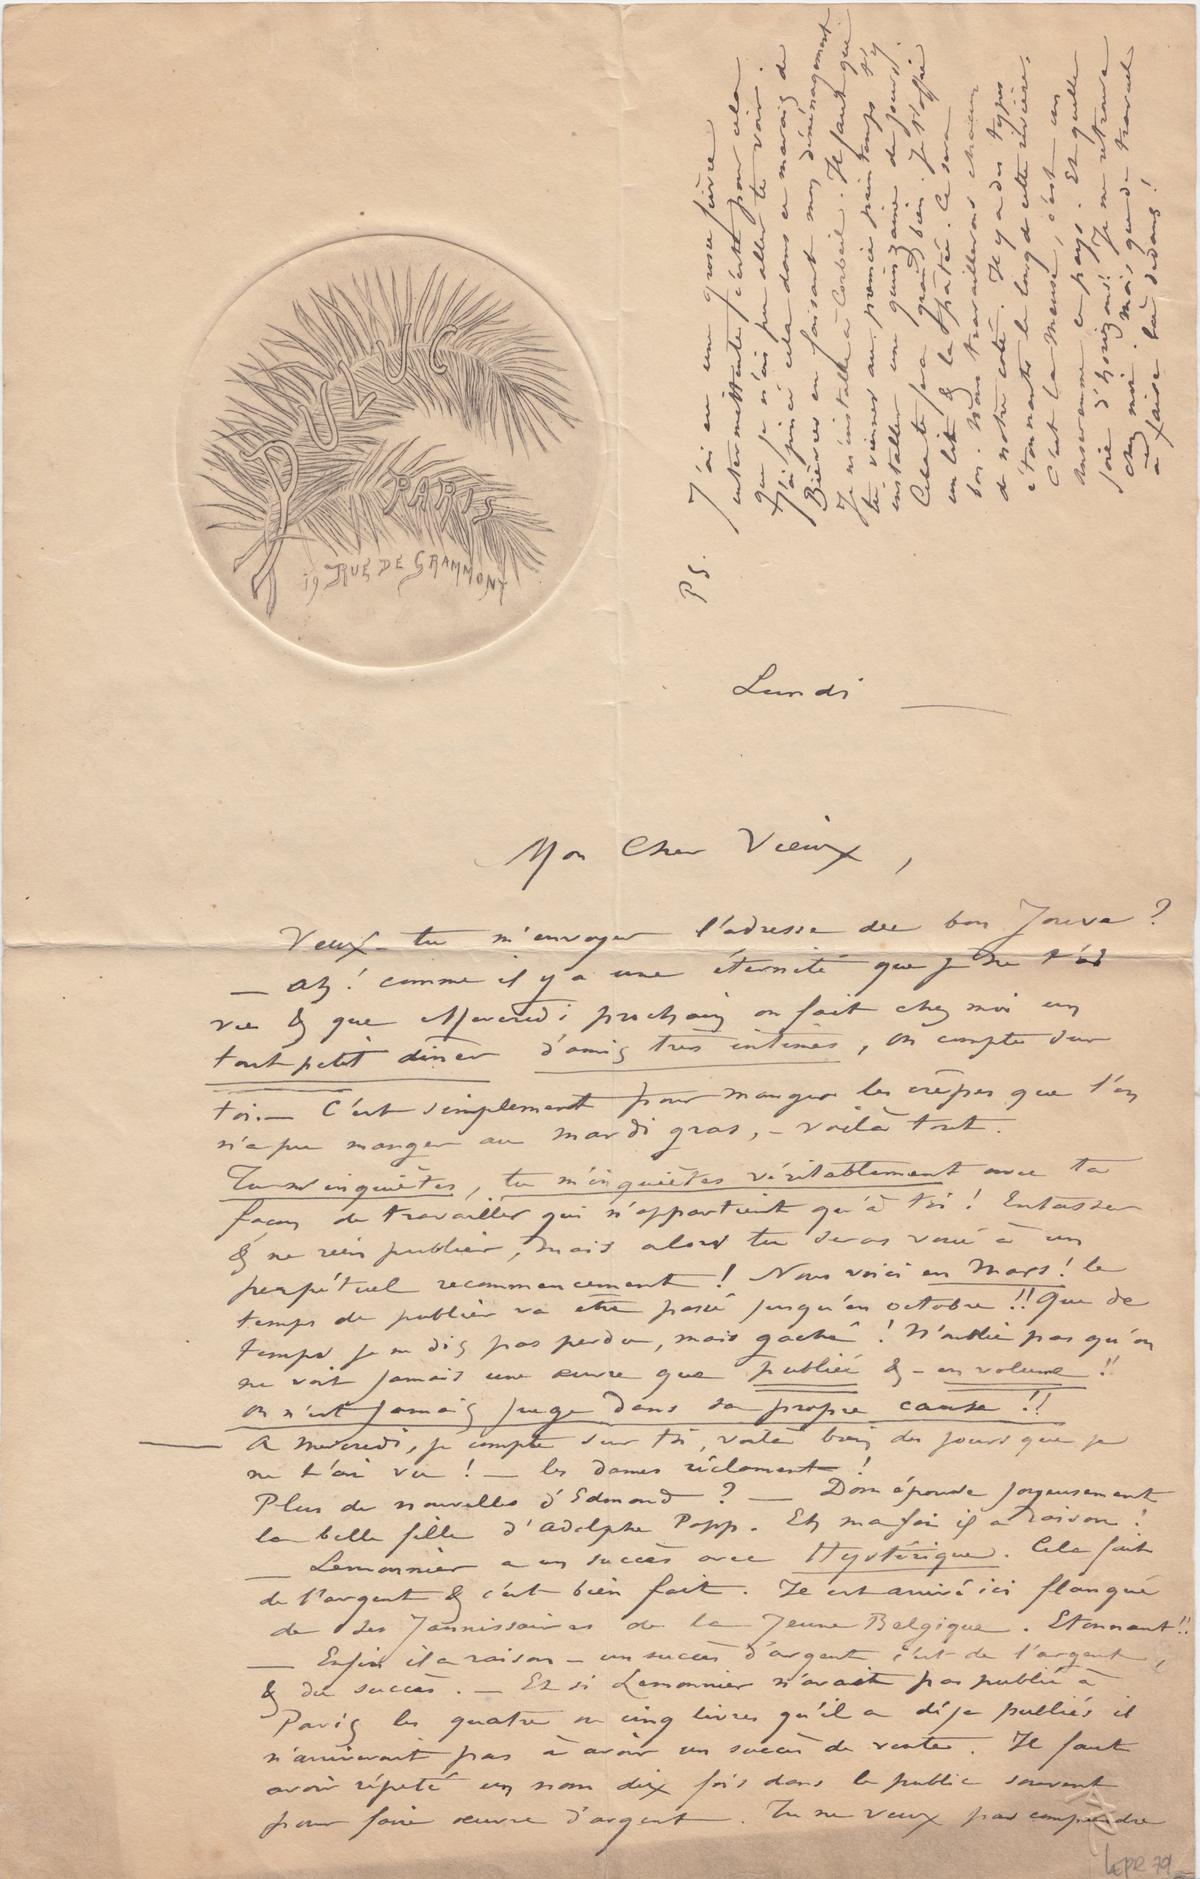 DULUC
PARIS
19 RUE DE GRAMMONT
PS. J'ai eu une grosse fièvre
intermittente, c'est pour cela
que je n'ai pu aller te voir.
J'ai pincé cela dans ce marais de
Bièvres en faisant mon déménagement
Je m'installe à Corbeil. Il faut que
tu viennes au premier printemps t'y
installer une quinzaine de jours.
Cela te fera grand bien. Je t'offre
un lit & la pâtée. Ce sera
bon. Nous travaillerons chacun
de notre coté. Il y a des types
étonnants le long de cette rivière.
C'est la Meuse, c'est un
Anseremme ce pays. Et quelle
joie d'horizons! Je me retrouve
chez moi. Mais que de travail
à faire là dedans!
Lundi
Mon Cher Vieux,
Veux-tu m'envoyer l'adresse du bon Jouve?
— Ah! comme il y a une éternité que je ne t'ai
vu & que Mercredi prochain on fait chez moi un
tout petit dîner d'amis très intimes, on compte sur
toi. — C'est simplement pour manger les crêpes que l'on
n'a pu manger au mardi gras, — voilà tout.
Tu m'inquiètes, tu m'inquiètes véritablement avec ta
façon de travailler qui n'appartient qu'à toi! Entasser
& ne rien publier, mais alors tu seras voué à un
perpétuel recommencement! Nous voici en Mars! le
temps de publier va être passé jusqu'en octobre!! Que de
temps je ne dis pas perdu, mais gaché! N'oublie pas qu'on
ne voit jamais une œuvre que publiée & - en volume!!
On n'est jamais juge dans sa propre cause!!
— A mercredi, je compte sur toi, voilà bien des jours que je
ne t'ai vu! — les dames réclament!
Plus de nouvelles d'Edmond? — Dom épouse joyeusement
la belle fille d'Adolphe Popp. Eh ma foi il a raison!
— Lemonnier a un succès avec Hystérique. Cela fait
de l'argent & c'est bien fait. Il est arrivé ici flanqué
de ses Jannissaires de la Jeune Belgique. Etonnant!!
— Enfin il a raison — un succès d'argent c'est de l'argent,
& du succès. — Et si Lemonnier n'avait pas publié à
Paris les quatre ou cinq livres qu'il a déjà publiés il
n'arriverait pas à avoir un succès de vente. Il faut
avoir répété un nom dix fois dans le public souvent
pour faire œuvre d'argent. Tu ne veux pas comprendre
LEPR 79